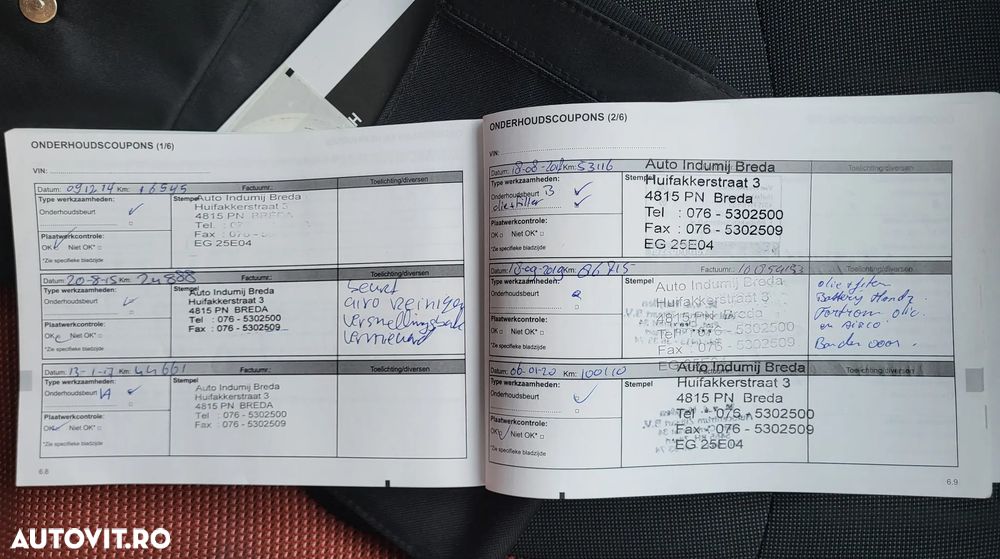 ONDERHOUDSCOUPONS (1/6)
VIN:
Datum: 091214 Km: 16545 Factuurnr.: Toelichting/diversen
Type werkzaamheden:
Onderhoudsbeurt
Stempel
Auto Indumij Breda
Huifakkerstraat 3
4815 PN BREDA
Tel. : 07
Fax : 076 -
EG 25E04
Plaatwerkcontrole:
OK Niet OK*
*Zie specifieke bladzijde
Datum: 20-8-15 Km: 24888 Factuurnr.: Toelichting/diversen
Type werkzaamheden:
Onderhoudsbeurt
Stempel
Auto Indumij Breda
Huifakkerstraat 3
4815 PN BREDA
Tel : 076 - 5302500
Fax : 076 - 5302509
beurt
airo reinigen
versnellingsbak
vernieuwd
Plaatwerkcontrole:
OK Niet OK*
*Zie specifieke bladzijde
Datum: 13-1-17 Km: 44661 Factuurnr.: Toelichting/diversen
Type werkzaamheden:
Onderhoudsbeurt 1A
Stempel
Auto Indumij Breda
Huifakkerstraat 3
4815 PN BREDA
Tel : 076 - 5302500
Fax : 076 - 5302509
Plaatwerkcontrole:
OK Niet OK*
*Zie specifieke bladzijde
6.8
ONDERHOUDSCOUPONS (2/6)
VIN:
Datum: 18-08-2018 Km: 53116
Type werkzaamheden:
Onderhoudsbeurt B
olie + filter
Auto Indumij Breda
Huifakkerstraat 3
4815 PN Breda
Tel : 076 - 5302500
Fax : 076 - 5302509
EG 25E04
Toelichting/diversen
Plaatwerkcontrole:
OK Niet OK*
*Zie specifieke bladzijde
Datum: 18-09-2019 Km: 86715 Factuurnr.: Toelichting/diversen
Type werkzaamheden:
Onderhoudsbeurt
Stempel
Auto Indumij Breda
Huifakkerstraat 3
4815 PN Breda
Tel : 076 - 5302500
Fax : 076 - 5302509
EG 25E04
Battery
olie
en Airco.
Banden voor.
Plaatwerkcontrole:
OK Niet OK*
*Zie specifieke bladzijde
Datum: 06-01-20 Km: 100110 Toelichting/diversen
Type werkzaamheden:
Onderhoudsbeurt
Stempel
Auto Indumij Breda
Huifakkerstraat 3
4815 PN Breda
Tel : 076 - 5302500
Fax : 076 - 5302509
EG 25E04
Plaatwerkcontrole:
OK Niet OK*
*Zie specifieke bladzijde
6.9
AUTOVIT.RO